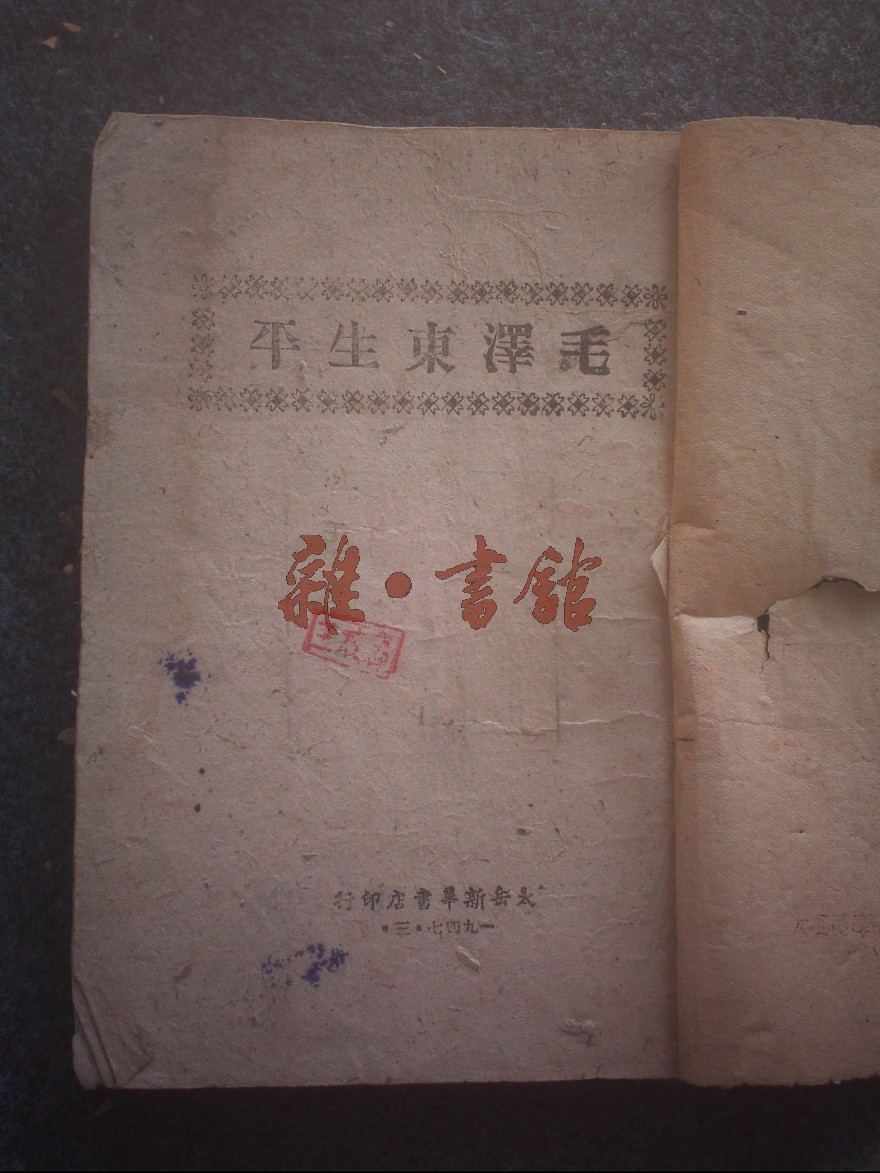 毛澤東生平
雜•書館
太岳新華書店印行
一九四七•三•